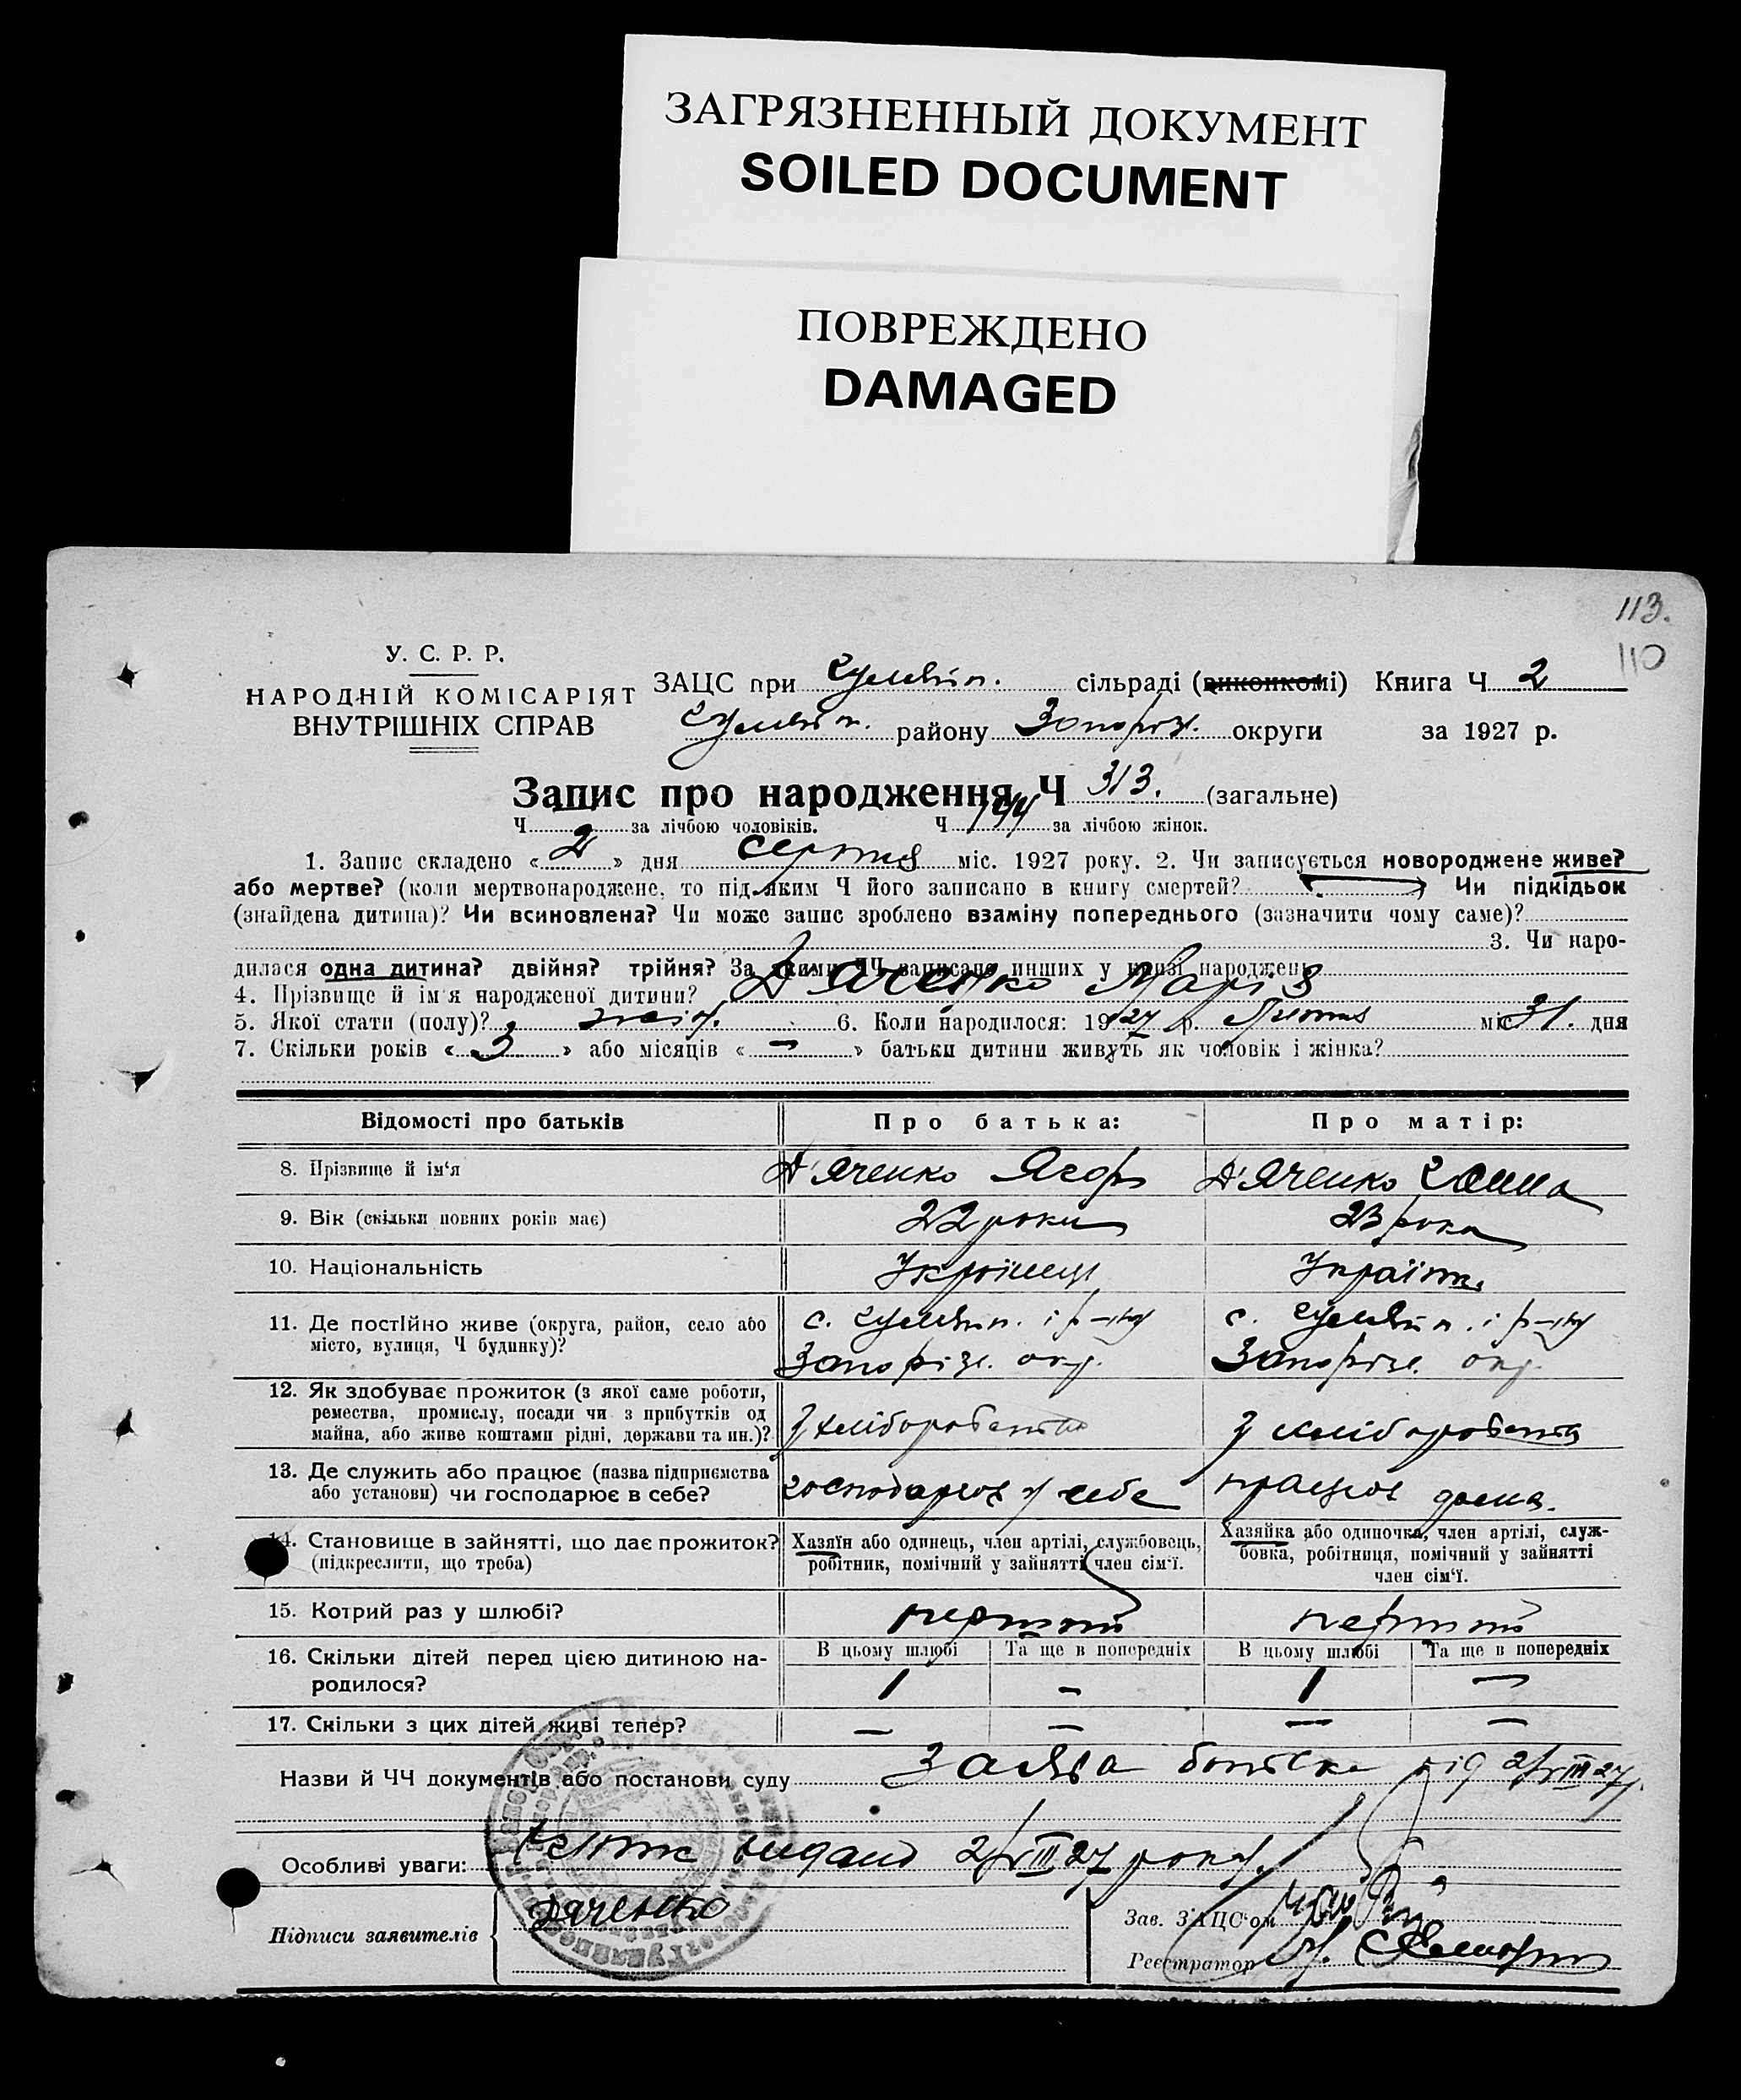 ЗАГРЯЗНЕННЫЙ ДОКУМЕНТ
SOILED DOCUMENT
ПОВРЕЖДЕНО
DAMAGED
113.
110
У. С. Р. Р.
НАРОДНІЙ КОМІСАРІЯТ
ВНУТРІШНІХ СПРАВ
ЗАЦС при Гуляйп. сільраді (виконкомі) Книга Ч 2
Гуляйп. району Запоріз. округи за 1927 р.
Запис про народження Ч 313. (загальне)
Ч за лічбою чоловіків. Ч 144 за лічбою жінок.
1. Запис складено « 2 » дня серпня міс. 1927 року. 2. Чи записується новороджене живе?
або мертве? (коли мертвонароджене, то під яким Ч його записано в книгу смертей? ) Чи підкідьок
(знайдена дитина)? Чи всиновлена? Чи може запис зроблено взаміну попереднього (зазначити чому саме)?
3. Чи наро-
дилася одна дитина? двійня? трійня? За якими ЧЧ записано инших у книзі народжень
4. Прізвище й ім'я народженої дитини? Д'яченко Марія
5. Якої стати (полу)? жін. 6. Коли народилося: 1927 р. Липня міс. 31. дня
7. Скільки років « 3 » або місяців « — » батьки дитини живуть як чоловік і жінка?
Відомості про батьків Про батька: Про матір:
8. Прізвище й ім'я Д'яченко Ягор Д'яченко Ганна
9. Вік (скільки повних років має) 22 роки 23 рока
10. Національність Українець Українк.
11. Де постійно живе (округа, район, село або с. Гуляйп. і р-ну с. Гуляйп. і р-ну
місто, вулиця, Ч будинку)? Запоріз. окр. Запоріз. окр.
12. Як здобуває прожиток (з якої саме роботи,
ремества, промислу, посади чи з прибутків од
майна, або живе коштами рідні, держави та ин.)? З хліборобства З хліборобства
13. Де служить або працює (назва підприємства
або установи) чи господарює в себе? господарює у себе працює дома.
14. Становище в зайнятті, що дає прожиток? Хазяїн або одинець, член артілі, службовець, Хазяйка або одиночка, член артілі, служ-
(підкреслити, що треба) робітник, помічний у зайнятті член сім'ї. бовка, робітниця, помічний у зайнятті
член сім'ї.
15. Котрий раз у шлюбі? перший перший
16. Скільки дітей перед цією дитиною на- В цьому шлюбі Та ще в попередніх В цьому шлюбі Та ще в попередніх
родилося? 1 - 1 —
17. Скільки з цих дітей живі тепер? — — — —
Назви й ЧЧ документів або постанови суду Заява батька від 2/VIII 27 р.
Особливі уваги: видано 2/VIII 27 року.
Підписи заявителів Дяченко
Зав. ЗАЦС'ом
Реєстратор